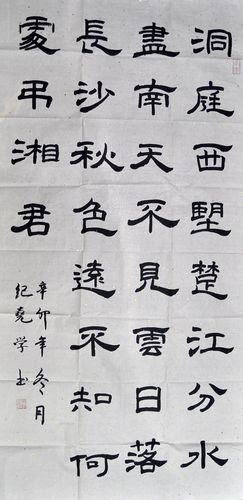 洞庭西望楚江分水
盡南天不見雲日落
長沙秋色遠不知何
處弔湘君
辛卯年冬月
紀堯学书